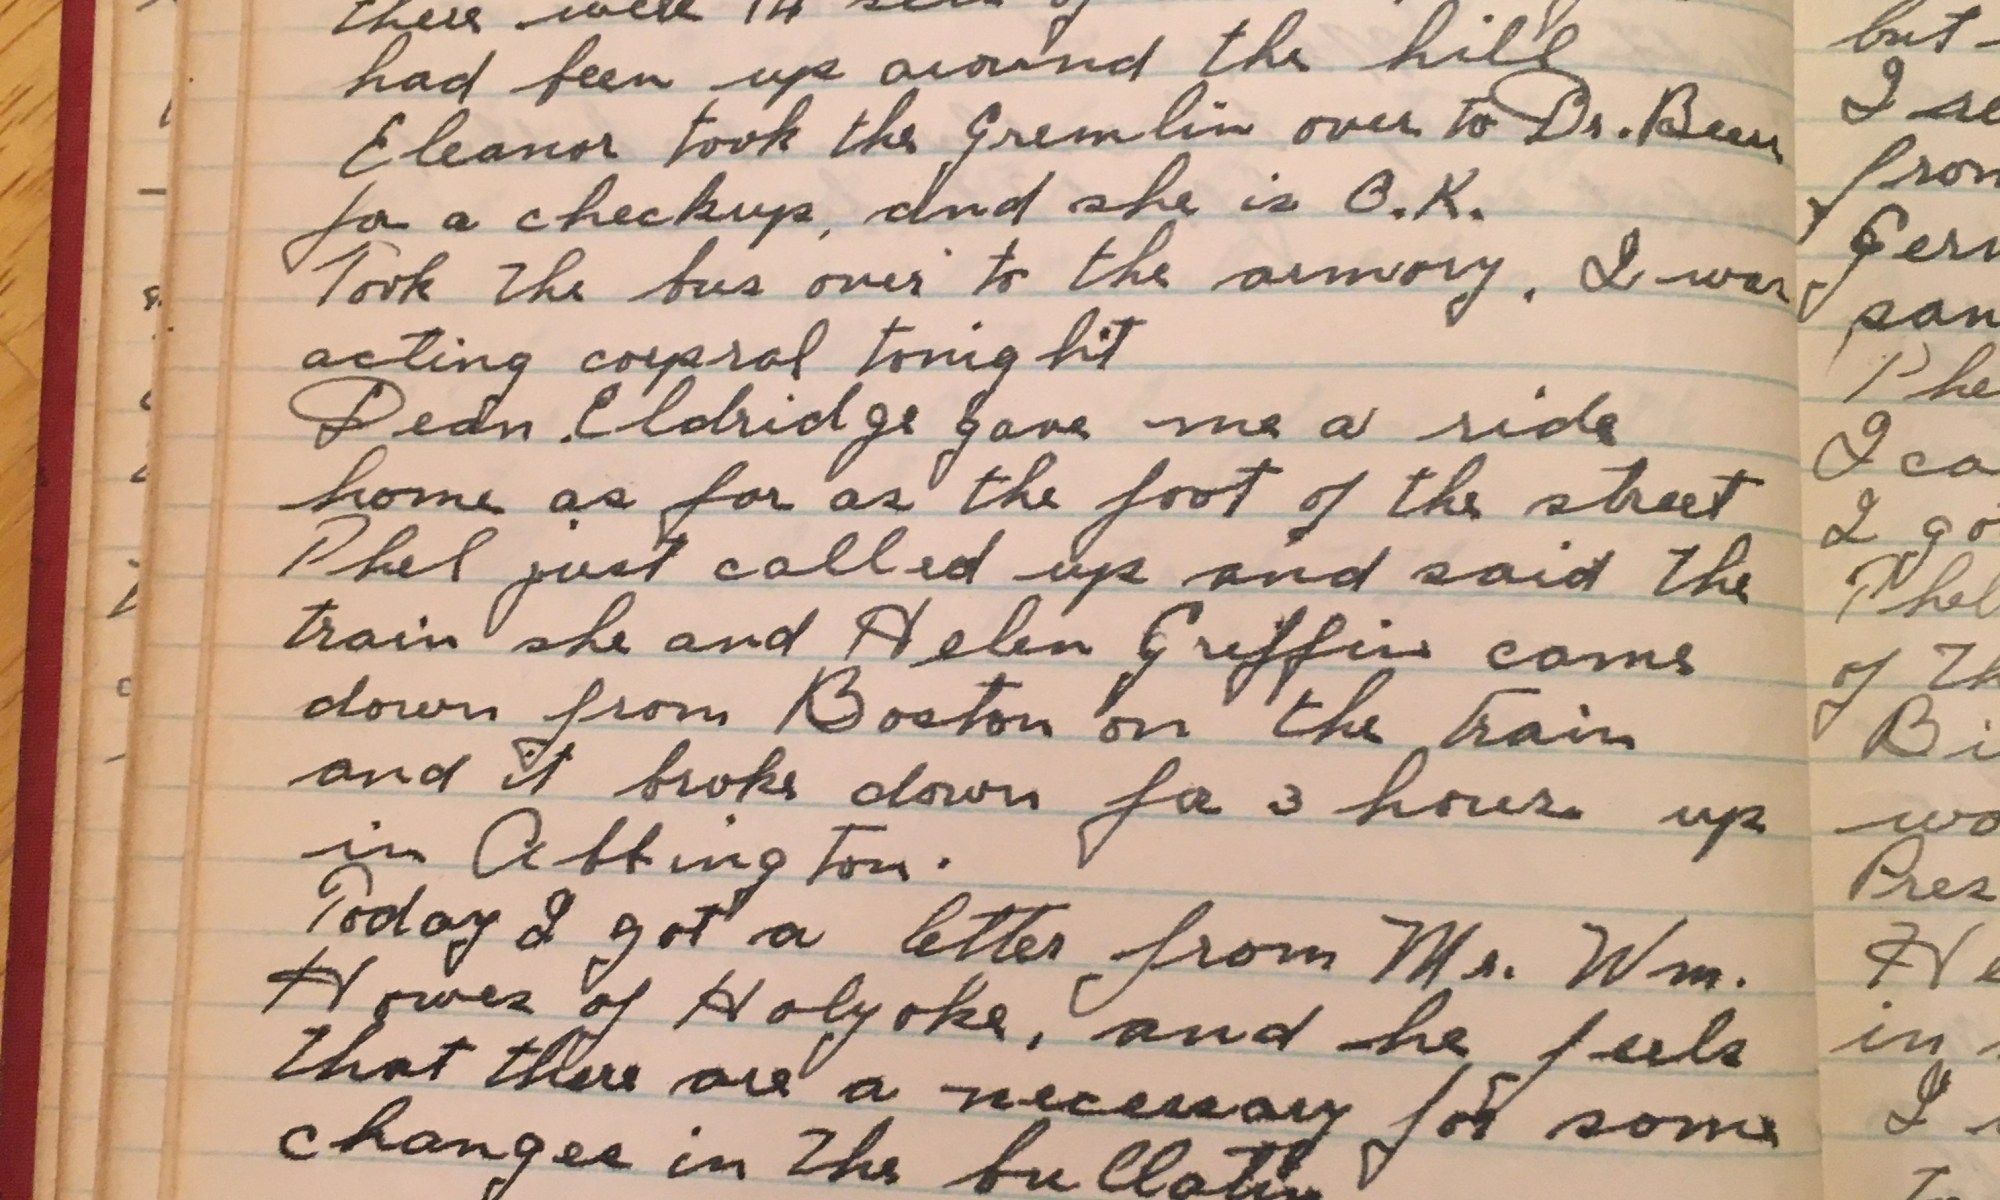 there were 14 of
had been up around the hill
Eleanor took the Gremlin over to Dr.
for a checkup, and she is O.K.
Took the bus over to the armory. I was
acting corpral tonight
Dean Eldridge gave me a ride
home as far as the foot of the street
Phel just called up and said the
train she and Helen Griffin came
down from Boston on the train
and it broke down for 3 hours up
in Abbington.
Today I got a letter from Mr. Wm.
Howes of Holyoke, and he feels
that there are a necessary for some
changes in the bullatin
but
I
from
I
I
Phel
of
in
I